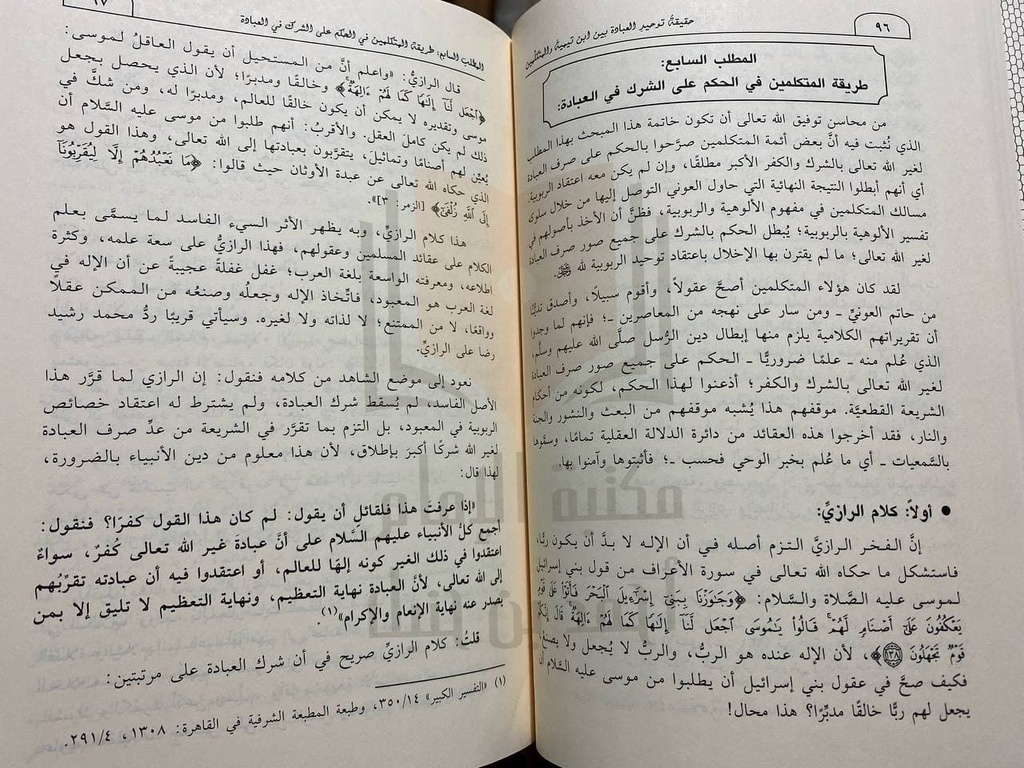 ٩٦
حقيقة توحيد العبادة بين ابن تيمية والمتكلمين
المطلب السابع:
طريقة المتكلمين في الحكم على الشرك في العبادة:
من محاسن توفيق الله تعالى أن تكون خاتمة هذا المبحث بهذا المطلب
الذي نُثبت فيه أنَّ بعض أئمة المتكلمين صرَّحوا بالحكم على صرف العبادة
لغير الله تعالى بالشرك والكفر الأكبر مطلقًا، وإن لم يكن معه اعتقاد الربوبية
أي أنهم أبطلوا النتيجة النهائية التي حاول العوني التوصل إليها من خلال سلوكه
مسالك المتكلمين في مفهوم الألوهية والربوبية؛ فظنَّ أن الأخذ بأصولهم في
تفسير الألوهية بالربوبية؛ يُبطل الحكم بالشرك على جميع صور صرف العبادة
لغير الله تعالى؛ ما لم يقترن بها الإخلال باعتقاد توحيد الربوبية لله ﷻ.
لقد كان هؤلاء المتكلمين أصحَّ عقولًا، وأقوم سبيلًا، وأصدق تديُّنًا
من حاتم العونيِّ ـ ومن سار على نهجه من المعاصرين ـ؛ فإنهم لما وجدوا
أن تقريراتهم الكلامية يلزم منها إبطال دين الرُّسل صلَّى الله عليهم وسلَّم،
الذي عُلم منه ـ علمًا ضروريًّا ـ الحكم على جميع صور صرف العبادة
لغير الله تعالى بالشرك والكفر؛ أذعنوا لهذا الحكم، لكونه من أحكام
الشريعة القطعيَّة. موقفهم هذا يُشبه موقفهم من البعث والنشور والجنة
والنار، فقد أخرجوا هذه العقائد من دائرة الدلالة العقلية تمامًا، وسمَّوها
بالسَّمعيات ـ أي ما عُلم بخبر الوحي فحسب ـ؛ فأثبتوها وآمنوا بها.
● أولًا: كلام الرازيِّ:
إنَّ الفخر الرازيَّ التزم أصله في أن الإله لا بدَّ أن يكون ربًّا،
فاستشكل ما حكاه الله تعالى في سورة الأعراف من قول بني إسرائيل
لموسى عليه الصَّلاة والسَّلام: ﴿وَجَٰوَزْنَا بِبَنِىٓ إِسْرَٰٓءِيلَ ٱلْبَحْرَ فَأَتَوْا۟ عَلَىٰ قَوْمٍ
يَعْكُفُونَ عَلَىٰٓ أَصْنَامٍ لَّهُمْ ۚ قَالُوا۟ يَٰمُوسَى ٱجْعَل لَّنَآ إِلَٰهًا كَمَا لَهُمْ ءَالِهَةٌ ۚ قَالَ إِنَّكُمْ
قَوْمٌ تَجْهَلُونَ ١٣٨﴾، لأن الإله عنده هو الربُّ، والربُّ لا يُجعل ولا يصنع،
فكيف صحَّ في عقول بني إسرائيل أن يطلبوا من موسى عليه السَّلام أن
يجعل لهم ربًّا خالقًا مدبِّرًا؟ هذا محال!
المطلب السابع: طريقة المتكلمين في الحكم على الشرك في العبادة
قال الرازيُّ: «واعلم أنَّ من المستحيل أن يقول العاقلُ لموسى:
﴿ٱجْعَل لَّنَآ إِلَٰهًا كَمَا لَهُمْ ءَالِهَةٌ﴾ وخالقًا ومدبرًا؛ لأن الذي يحصل بجعل
موسى وتقديره لا يمكن أن يكون خالقًا للعالم، ومدبرًا له، ومن شكَّ في
ذلك لم يكن كاملَ العقل. والأقربُ: أنهم طلبوا من موسى عليه السَّلام أن
يُعيِّن لهم أصنامًا وتماثيلَ، يتقرَّبون بعبادتها إلى الله تعالى، وهذا القول هو
الذي حكاه الله تعالى عن عبدة الأوثان حيث قالوا: ﴿مَا نَعْبُدُهُمْ إِلَّا لِيُقَرِّبُونَآ
إِلَى ٱللَّهِ زُلْفَىٰٓ﴾ [الزمر: ٣]».
هذا كلام الرازيِّ، وبه يظهر الأثر السيء الفاسد لما يسمَّى بعلم
الكلام على عقائد المسلمين وعقولهم، فهذا الرازيُّ على سعة علمه، وكثرة
اطلاعه، ومعرفته الواسعة بلغة العرب؛ غفل غفلةً عجيبةً عن أن الإله في
لغة العرب هو المعبود، فاتِّخاذ الإله وجعلُه وصنعُه من الممكن عقلًا
وواقعًا، لا من الممتنع؛ لا لذاته ولا لغيره. وسيأتي قريبًا ردُّ محمد رشيد
رضا على الرازيِّ.
نعود إلى موضع الشاهد من كلامه فنقول: إن الرازي لما قرَّر هذا
الأصل الفاسد، لم يُسقط شرك العبادة، ولم يشترط له اعتقاد خصائص
الربوبية في المعبود، بل التزم بما تقرَّر في الشريعة من عدِّ صرف العبادة
لغير الله شركًا أكبرَ بإطلاق، لأن هذا معلوم من دين الأنبياء بالضرورة،
لهذا قال:
«إذا عرفتَ هذا فلقائلٍ أن يقول: لم كان هذا القول كفرًا؟ فنقول:
أجمع كلُّ الأنبياء عليهم السَّلام على أنَّ عبادةَ غير الله تعالى كُفرٌ، سواءٌ
اعتقدوا في ذلك الغير كونه إلهًا للعالم، أو اعتقدوا فيه أن عبادته تقرِّبهم
إلى الله تعالى، لأنَّ العبادة نهاية التعظيم، ونهاية التعظيم لا تليق إلا بمن
يصدر عنه نهاية الإنعام والإكرام»(١).
قلتُ: كلام الرازيِّ صريح في أن شرك العبادة على مرتبتين:
(١) «التفسير الكبير» ٣٥٠/١٤، وطبعة المطبعة الشرفية في القاهرة: ١٣٠٨، ٢٩١/٤.